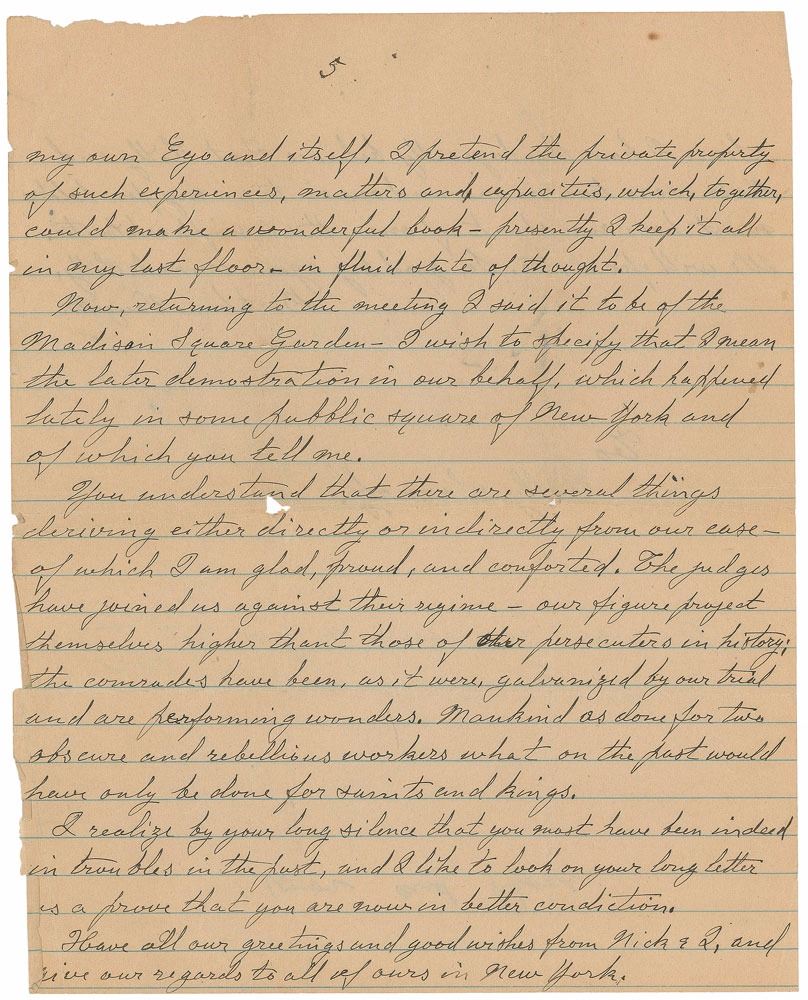 5
my own Ego and itself, I pretend the private property
of such experiences, matters and, capacities, which, together,
could make a woonderful book - presently I keep it all
in my last floor - in fluid state of thought.
Now, returning to the meeting I said it to be of the
Madison Square Garden - I wish to specify that I mean
the later demostration in our behalf, which happened
lately in some pubblic square of New York and
of which you tell me.
You understand that there are several things
deriving either directly or indirectly from our case -
of which I am glad, proud, and conforted. The judges
have joined us against their regime - our figure project
themselves higher thant those of our persecuters in history;
the comrades have been, as it were, galvanized by our trial
and are performing wonders. Mankind as done for two
obscure and rebellious workers what on the past would
have only be done for saints and kings.
I realize by your long silence that you most have been indeed
in troubles in the past, and I like to look on your long letter
as a prove that you are now in better condiction.
Have all our greetings and good wishes from Nick & I, and
give our regards to all of ours in New York.